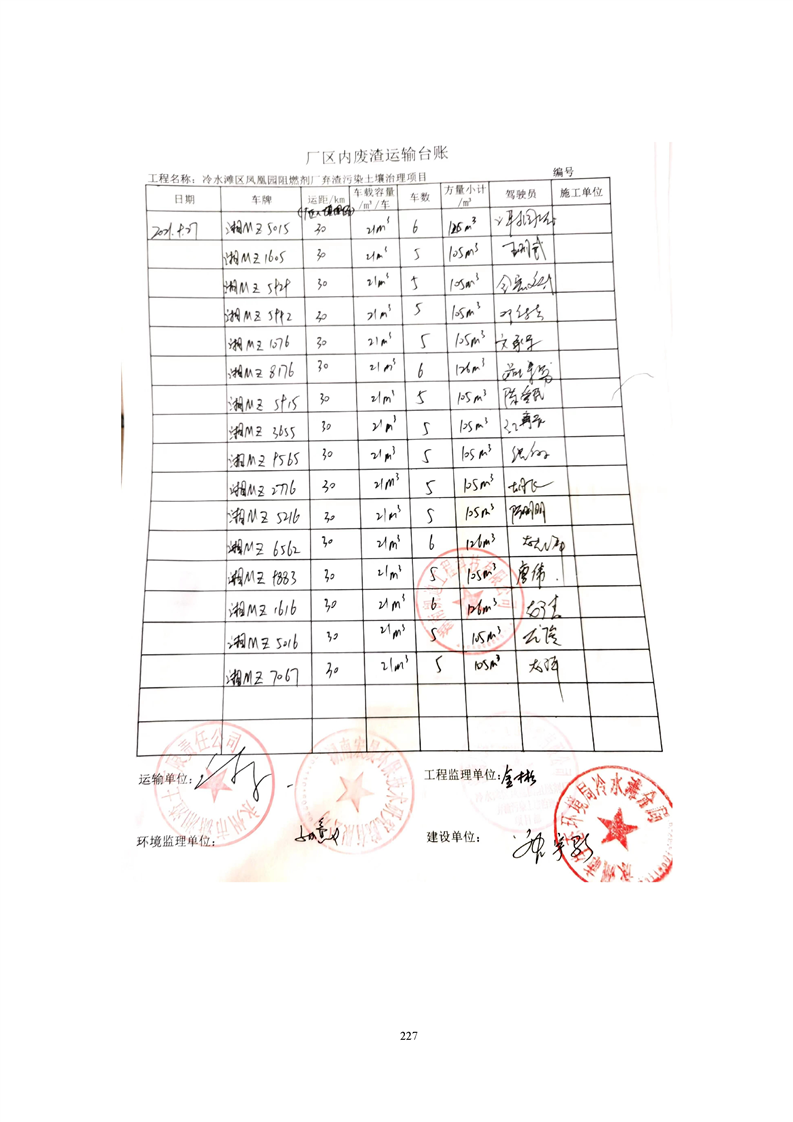 厂区内废渣运输台账
工程名称：冷水滩区凤凰园阻燃剂厂弃渣污染土壤治理项目 编号
日期 车牌 运距/km 车载容量/m³/车 车数 方量小计/m³ 驾驶员 施工单位
2021.4.27 湘MZ5015 30 21m³ 6 126m³
湘MZ1605 30 21m³ 5 105m³
湘MZ5929 30 21m³ 5 105m³
湘MZ5992 30 21m³ 5 105m³
湘MZ1076 30 21m³ 5 105m³
湘MZ8176 30 21m³ 6 126m³
湘MZ5915 30 21m³ 5 105m³
湘MZ3655 30 21m³ 5 105m³
湘MZ9565 30 21m³ 5 105m³
湘MZ2776 30 21m³ 5 105m³
湘MZ5216 30 21m³ 5 105m³ 陈明明
湘MZ6562 30 21m³ 6 126m³
湘MZ9883 30 21m³ 5 105m³ 唐伟
湘MZ1616 30 21m³ 6 126m³
湘MZ5016 30 21m³ 5 105m³
湘MZ7067 30 21m³ 5 105m³
运输单位： 工程监理单位：
环境监理单位： 建设单位：
227